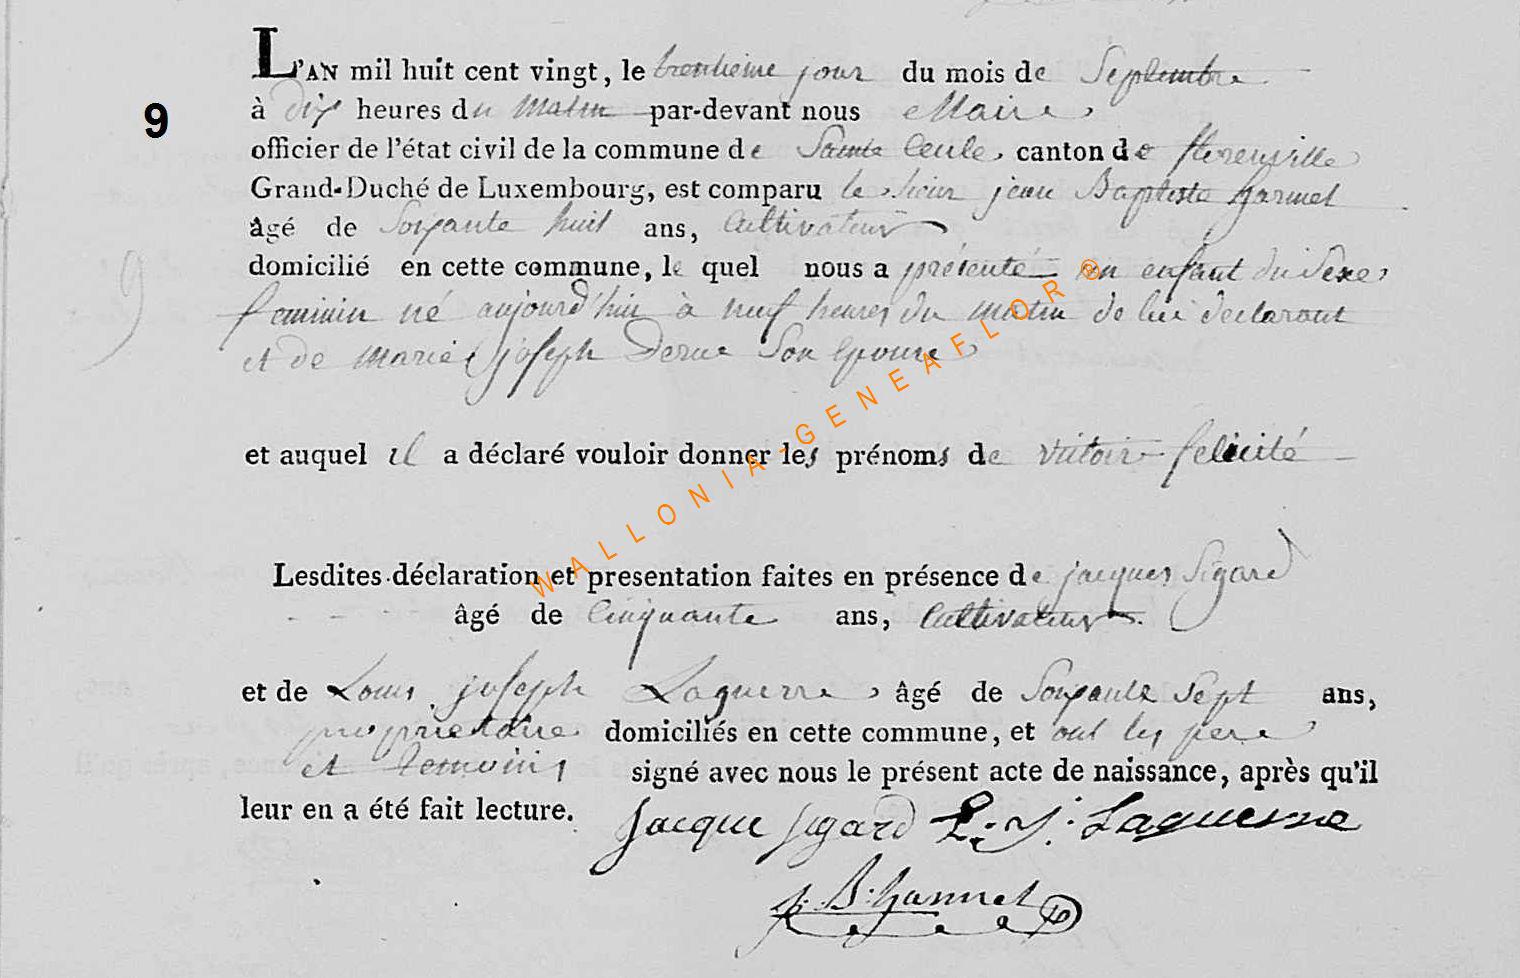 L'AN mil huit cent vingt, le trentieme jour du mois de Septembre
à dix heures du matin par-devant nous Maire
9
officier de l'état civil de la commune de Sainte Cecile, canton de florenville
Grand-Duché de Luxembourg, est comparu le sieur jean Baptiste
âgé de Soixante huit ans, Cultivateur
domicilié en cette commune, le quel nous a présenté un enfant du Sexe
feminin né aujourd'hui à neuf heures du matin de lui declarant
9
et de marie joseph Son epouse
et auquel il a déclaré vouloir donner les prénoms de victoir felicité
WALLONIA-GENEAFLOR®
Lesdites déclaration et presentation faites en présence de jacques Sigard
âgé de Cinquante ans, Cultivateur
et de Louis joseph Laguerre âgé de Soixante Sept ans,
proprietaire domiciliés en cette commune, et ont les pere
et temoins signé avec nous le présent acte de naissance, après qu'il
leur en a été fait lecture.
Jacque Sigard L. J. Laguerre
j. B. hannel